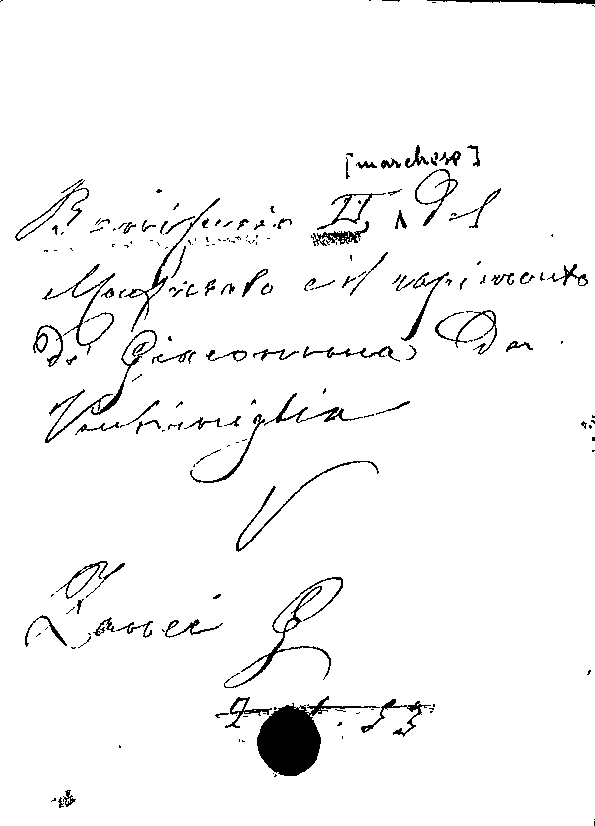 [marchese]
Bonifacio II, ^ Del
Monferrato e il rapimento
di Giacomina Da
Ventimiglia
V
Zanei G